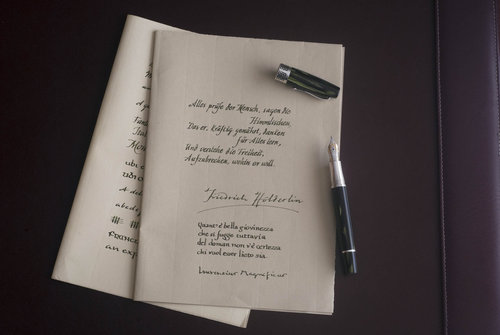 Alles prüfe der Mensch, sagen die
Himmlischen,
Das er, kräftig genährt, danken
für Alles lern,
Und verstehe die Freiheit,
Aufzubrechen, wohin er will.
Friedrich Hölderlin
Quant'è bella giovinezza
che si fugge tuttavia
del doman non v'è certezza
chi vuol esser lieto sia.
Laurentius Magnificus
an exp